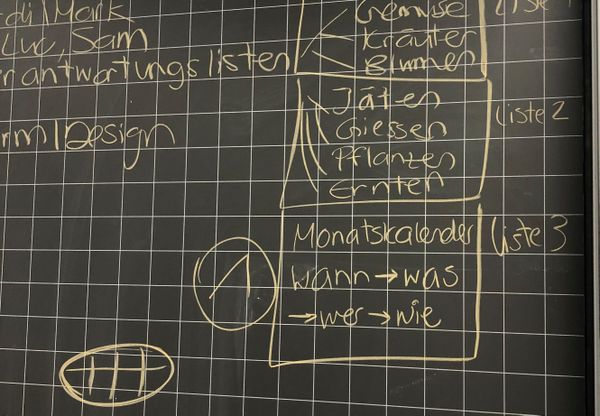 di/Mark
Luc, Sam
rantwortungslisten
rm/Design
Gemüse
Kräuter
Blumen
Liste 1
Jäten
Giessen
Pflanzen
Ernten
Liste 2
Monatskalender
wann→was
→wer→wie
Liste 3
1